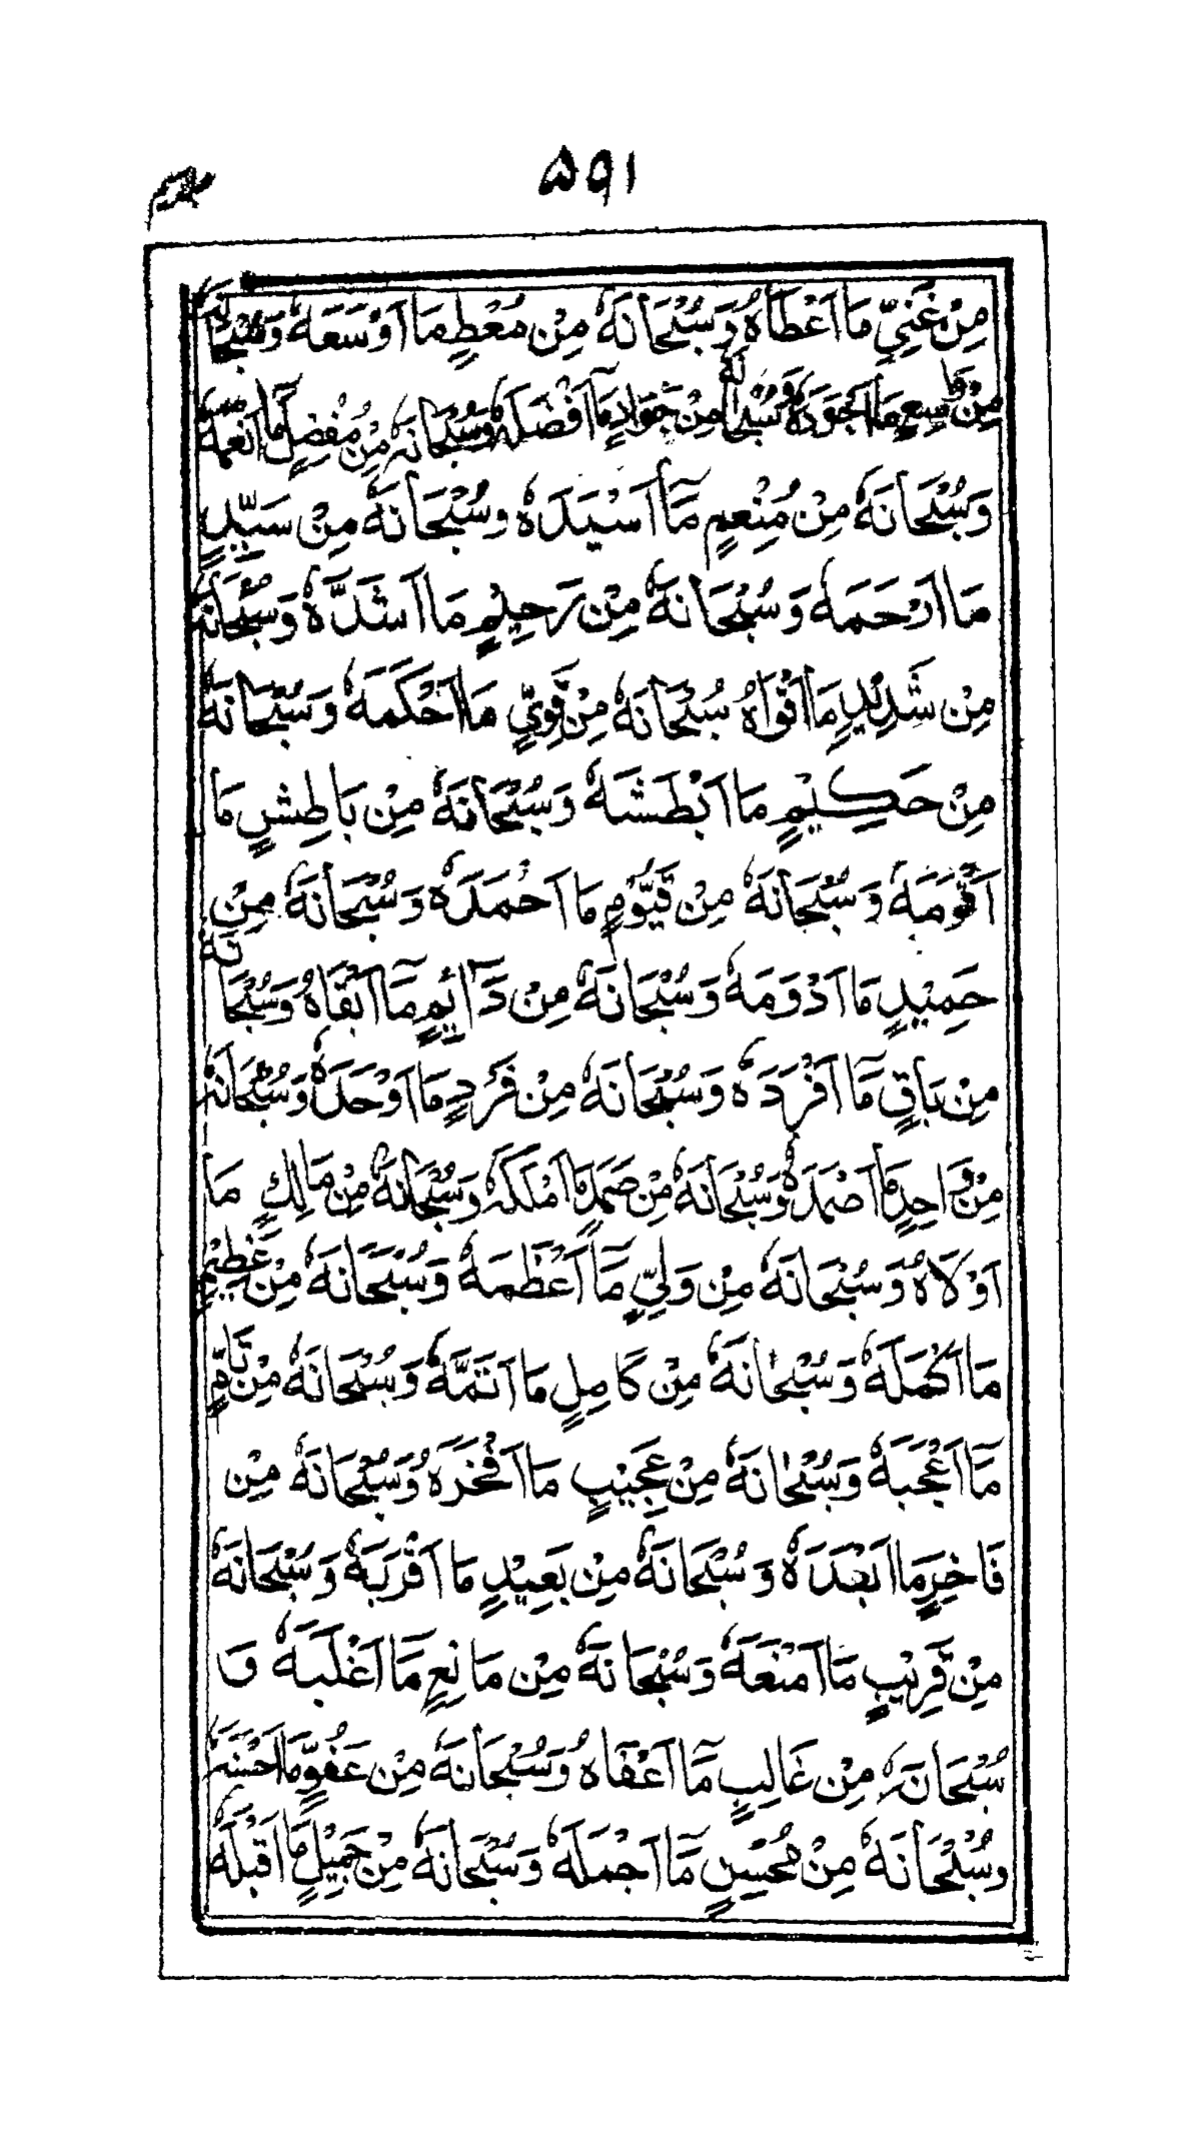 ۵۹۱
مِنْ غَنِيٍّ مَا اَعْطَاهُ وَسُبْحَانَهٗ مِنْ مُعْطٍ مَا اَوْسَعَهٗ وَسُبْحَانَهٗ
مِنْ وَاسِعٍ مَا اَجْوَدَهٗ وَسُبْحَانَهٗ مِنْ جَوَادٍ مَآ اَفْضَلَهٗ وَسُبْحَانَهٗ مِنْ مُفْضِلٍ مَا اَنْعَمَهٗ
وَسُبْحَانَهٗ مِنْ مُنْعِمٍ مَآ اَسْيَدَهٗ وسُبْحَانَهٗ مِنْ سَيِّدٍ
مَا اَرْحَمَهٗ وَسُبْحَانَهٗ مِنْ رَحِيْمٍ مَا اَشَدَّهٗ وَسُبْحَانَهٗ
مِنْ شَدِيْدٍ مَا اَقْوَاهُ سُبْحَانَهٗ مِنْ قَوِيٍّ مَا اَحْكَمَهٗ وَسُبْحَانَهٗ
مِنْ حَكِيْمٍ مَا اَبْطَشَهٗ وَسُبْحَانَهٗ مِنْ بَاطِشٍ مَا
اَقْوَمَهٗ وَسُبْحَانَهٗ مِنْ قَيُّوْمٍ مَا اَحْمَدَهٗ وَسُبْحَانَهٗ مِنْ
حَمِيْدٍ مَا اَدْوَمَهٗ وَسُبْحَانَهٗ مِنْ دَآئِمٍ مَآ اَبْقَاهُ وَسُبْحَانَهٗ
مِنْ بَاقٍ مَّآ اَفْرَدَهٗ وَسُبْحَانَهٗ مِنْ فَرْدٍ مَا اَوْحَدَهٗ وَسُبْحَانَهٗ
مِنْ وَاحِدٍ مَا اَصْمَدَهٗ وَسُبْحَانَهٗ مِنْ صَمَدٍ مَا اَمْلَكَهٗ وَسُبْحَانَهٗ مِنْ مَالِكٍ مَا
اَوْلَاهُ وَسُبْحَانَهٗ مِنْ وَلِيٍّ مَآ اَعْظَمَهٗ وَسُبْحَانَهٗ مِنْ عَظِيْمٍ
مَا اَكْمَلَهٗ وَسُبْحَانَهٗ مِنْ كَامِلٍ مَا اَتَمَّهٗ وَسُبْحَانَهٗ مِنْ تَامٍّ
مَآ اَعْجَبَهٗ وَسُبْحَانَهٗ مِنْ عَجِيْبٍ مَا اَفْخَرَهٗ وَسُبْحَانَهٗ مِنْ
فَاخِرٍ مَا اَبْعَدَهٗ وَسُبْحَانَهٗ مِنْ بَعِيْدٍ مَا اَقْرَبَهٗ وَسُبْحَانَهٗ
مِنْ قَرِيْبٍ مَآ اَمْنَعَهٗ وَسُبْحَانَهٗ مِنْ مَانِعٍ مَآ اَغْلَبَهٗ وَ
سُبْحَانَهٗ مِنْ غَالِبٍ مَّآ اَعْفَاهُ وَسُبْحَانَهٗ مِنْ عَفُوٍّ مَا اَحْسَنَهٗ
وسُبْحَانَهٗ مِنْ مُحْسِنٍ مَآ اَجْمَلَهٗ وَسُبْحَانَهٗ مِنْ جَمِيْلٍ مَا اَقْبَلَهٗ